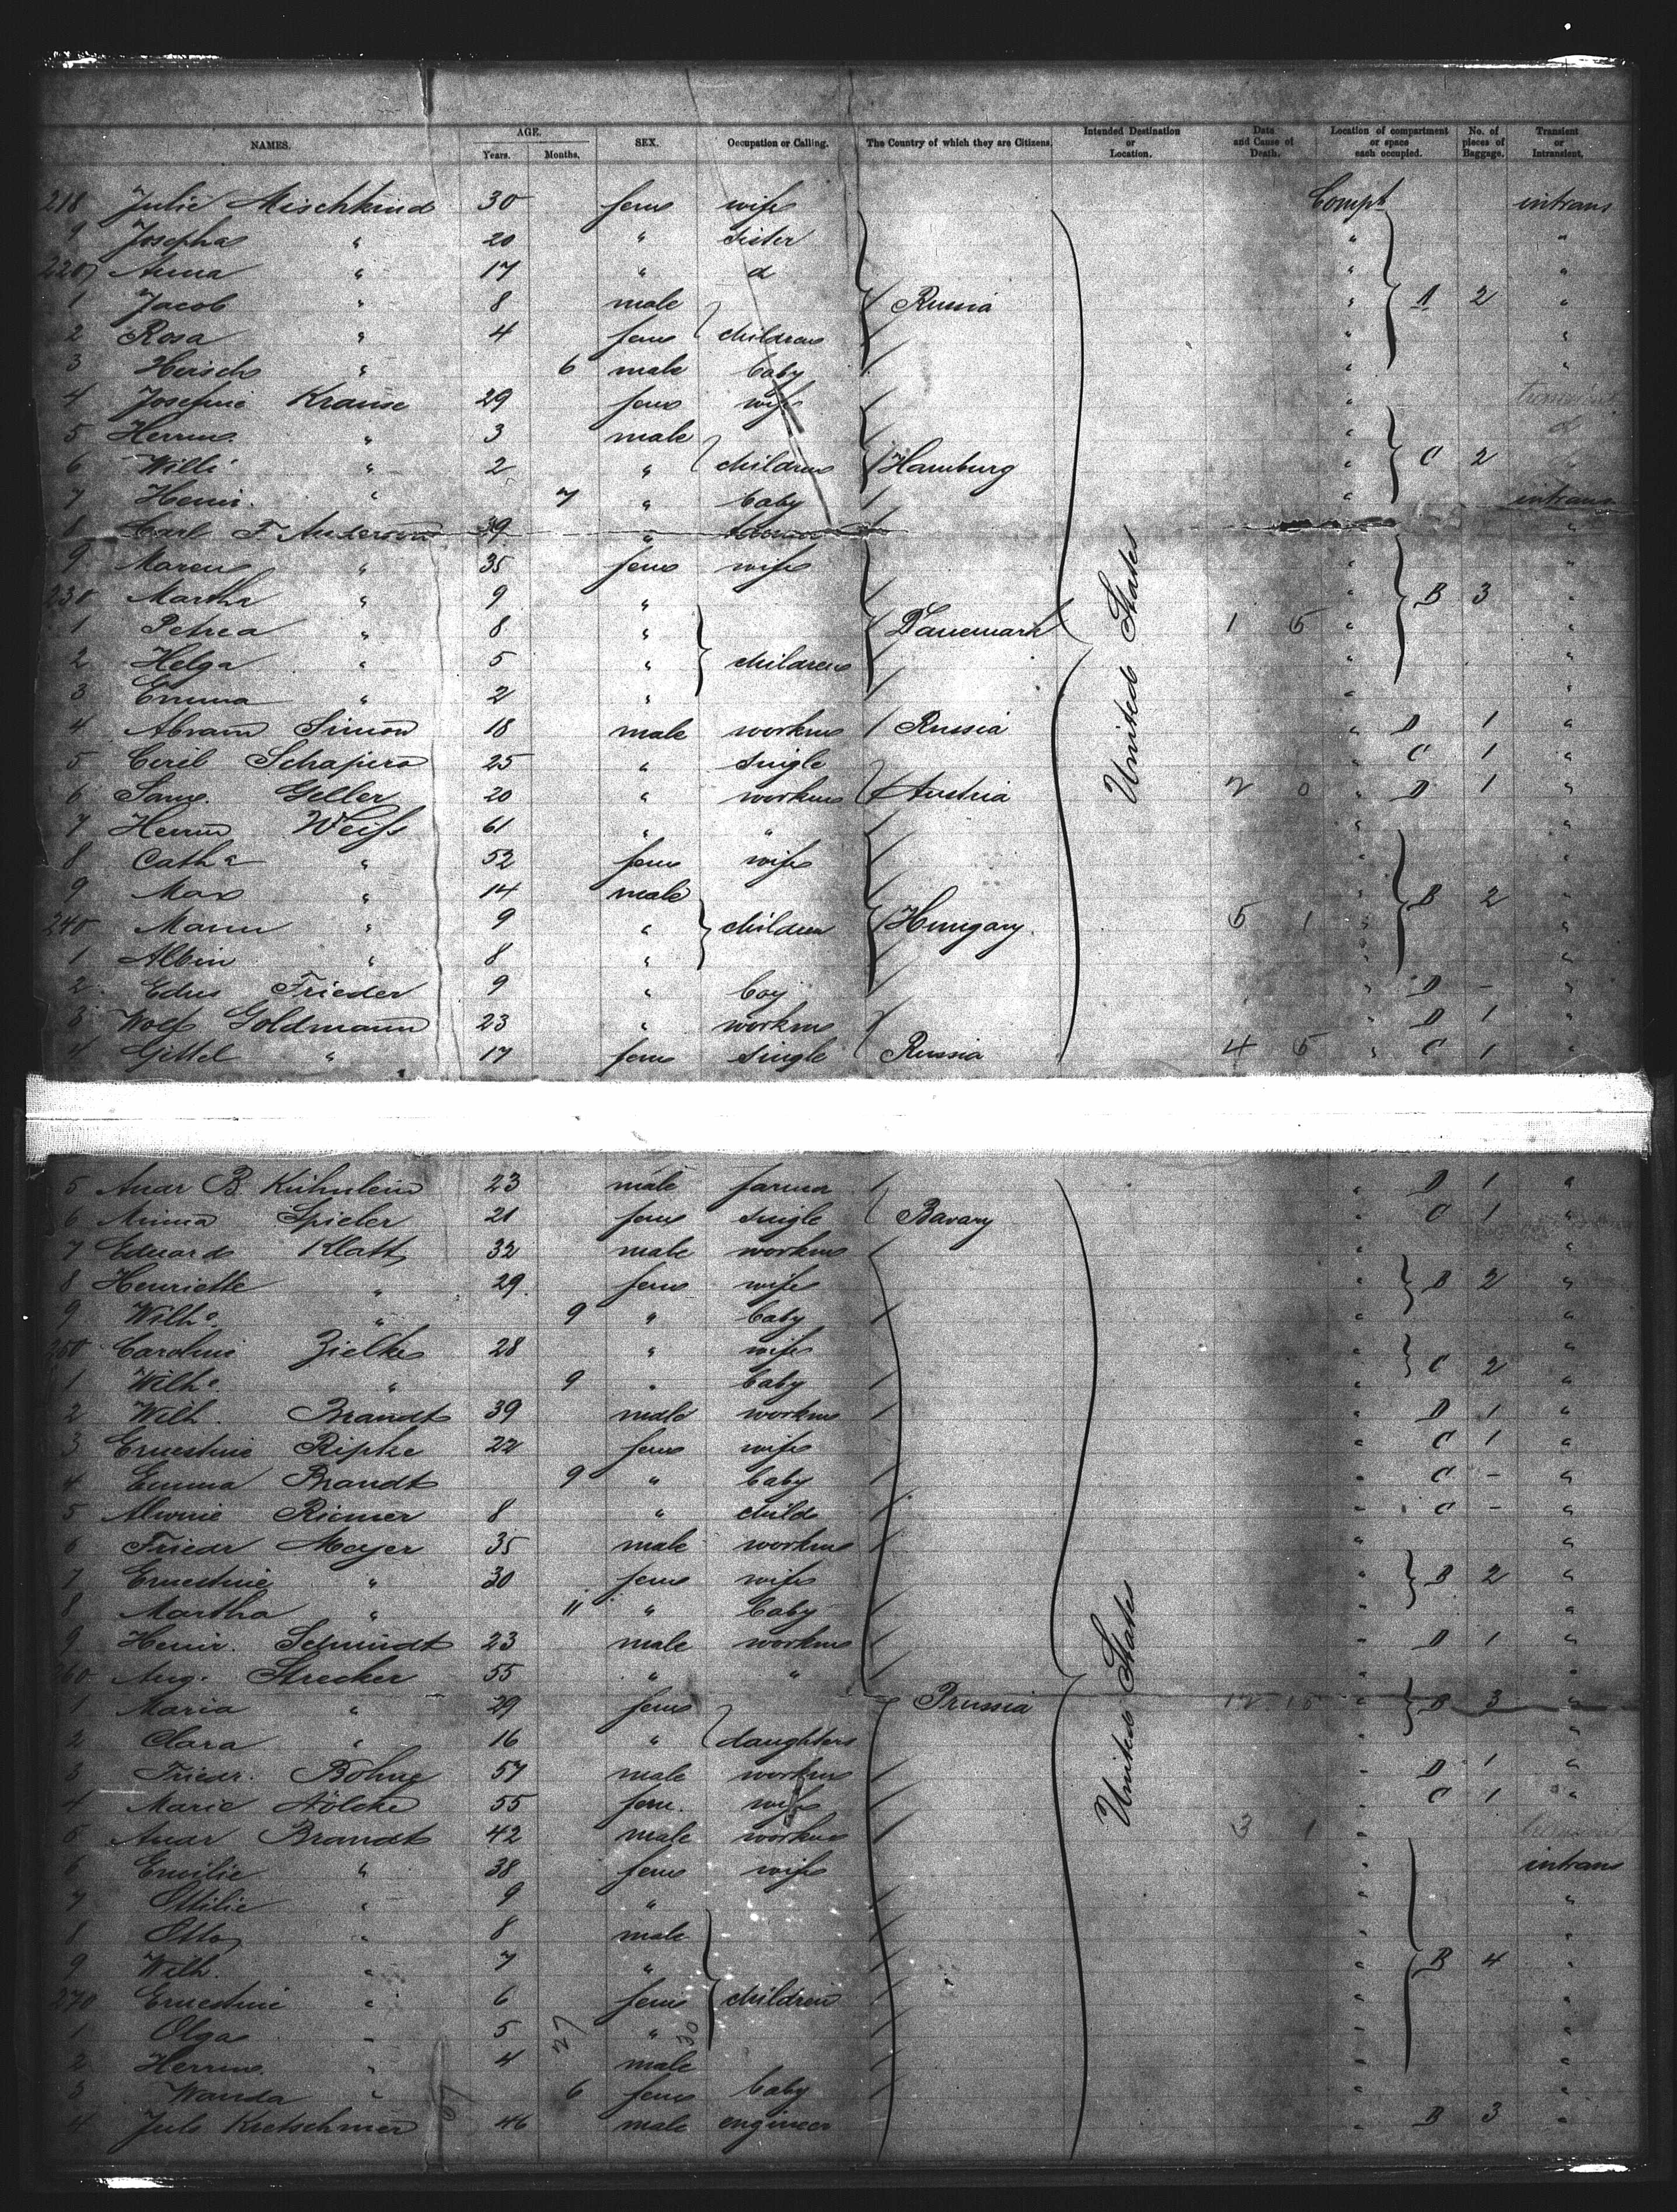 NAMES. AGE. Years. Months. SEX. Occupation or Calling. The Country of which they are Citizens. Intended Destination or Location. Date and Cause of Death. Location of compartment or space each occupied. No. of pieces of Baggage. Transient or Intransient.
218 Julie Mischkind 30 fem wife Compt intrans
9 Josepha " 20 " sister " "
220 Anna " 17 " d " "
1 Jacob " 8 male Russia " A 2 "
2 Rosa " 4 fem children " "
3 Hirsch " 6 male baby " "
4 Josefine Krause 29 fem wife "
5 Herm. " 3 male " d
6 Willi " 2 " children Hamburg " C 2
7 Heinr. " 7 " baby " intrans
8 Carl F Anderson 39 " "
9 Maren " 35 fem wife " "
230 Martha " 9 " " B 3 "
1 Petrea " 8 " Danemark 1 5 " "
2 Helga " 5 " children " "
3 Emma " 2 " " "
4 Abram Simon 18 male workm / Russia " D 1 "
5 Ciril Schapiro 25 " single C 1 "
6 Sam. Geller 20 " workm Austria 2 0 " D 1 "
7 Herm Weiss 61 " " " "
8 Cath a " 52 fem wife " "
9 Max " 14 male " B 2 "
240 Mann " 9 " children Hungary. 5 1 " "
1 Albin " 8 " " "
2 Edus Frieder 9 " boy " D - "
3 Wolf Goldmann 23 " workm " D 1 "
4 Gittel " 17 fem single Russia 4 5 " C 1 "
5 Andr B Kühnlein 23 male farmer / " D 1 "
6 Minna Spieler 21 fem single Bavary " C 1 "
7 Eduard Klatt 32 male workm / " "
8 Henriette " 29 fem wife " B 2 "
9 Wilhe. " 9 " baby / " "
250 Caroline Zielke 28 " wife " C 2 "
1 Wilhe. " 9 " baby / " "
2 Wilh. Brandt 39 male workm / " D 1 "
3 Ernestine Ripke 22 fem wife " C 1 "
4 Emma Brandt 9 " baby / " C - "
5 Alwine Riemer 8 " child / " C - "
6 Friedr Meyer 35 male workm / " "
7 Ernestine " 30 fem wife " B 2 "
8 Martha " 11 " baby / " "
9 Heinr. Schmidt 23 male workm / " D 1 "
260 Aug. Strecker 55 " " / "
1 Maria " 29 fem Prussia 12 15 " B 3 "
2 Clara " 16 " daughters "
3 Friedr. Bohne 57 male workm / D 1 "
4 Marie Nölcke 55 fem. wife / C 1 "
5 Andr Brandt 42 male workm / 3 1 "
6 Emilie " 38 fem wife " intrans
7 Ottilie " 9 " / " "
8 Otto " 8 male / " "
9 Wilh. " 7 " / " B 4 "
270 Ernestine " 6 fem children / " "
1 Olga " 5 " / " "
2 Herm. " 4 male / " "
3 Wanda " 6 fem baby / " "
4 Juls Kretschmer 46 male engineer " B 3 "
United States
United States